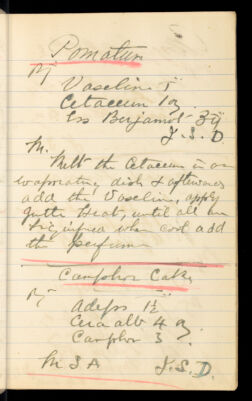 Pomatum
Rx
Vaseline
Cetaceum 1 oz
Ess Bergamot
F. S. D
M.
Melt the Cetaceum in an
evaporating dish & afterwards
add the Vaseline, apply
heat, until all are
when cool add
the perfume
Camphor Cake
Rx
Adeps 1½
Cera alb 4 oz.
Camphor 3
M S A F. S. D.